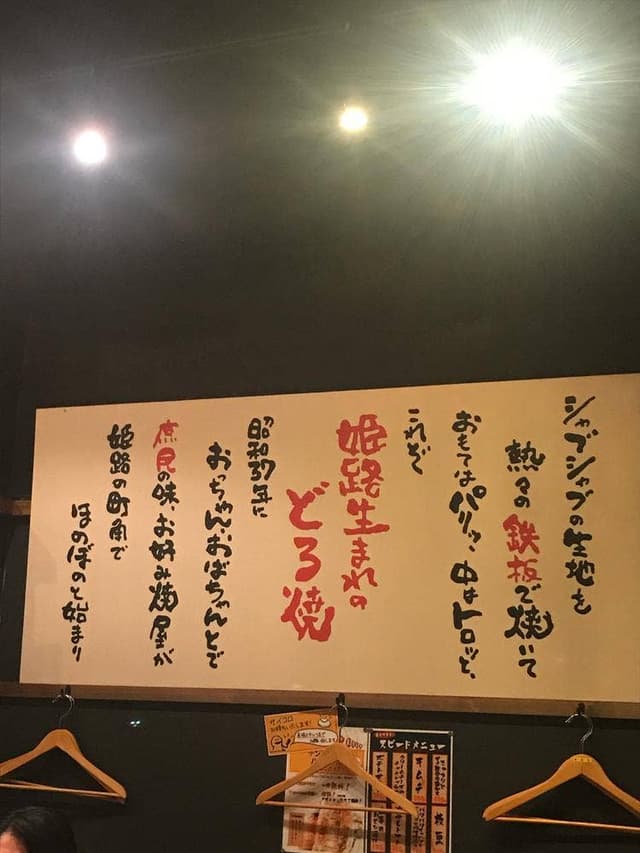 シャブシャブの生地を
熱々の鉄板で焼いて
おもてはパリッ、中はトロッと、
これぞ
姫路生まれの
どろ焼
昭和37年に
おっちゃん、おばちゃんとで
庶民の味、お好み焼屋が
姫路の町角で
ほのぼのと始まり
サイコロ
スピードメニュー
キムチ
枝豆